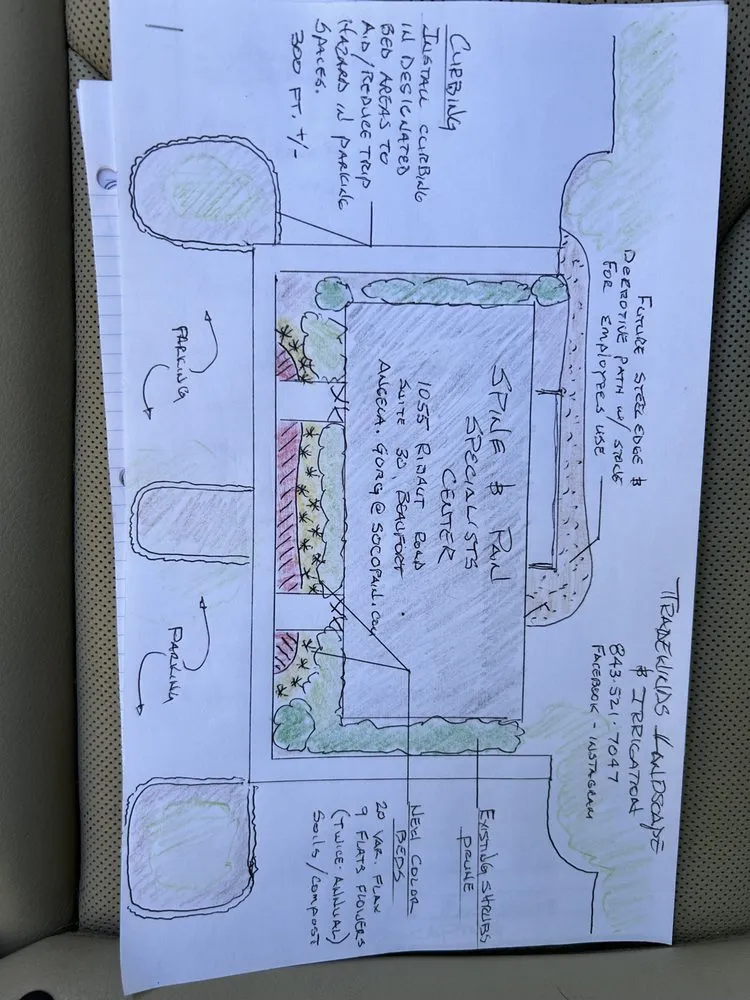 TRADEWINDS LANDSCAPE
& IRRIGATION
843.521.7047
FACEBOOK - INSTAGRAM
FUTURE STEEL EDGE &
DERROTIVE PATH W/ STONE
FOR EMPLOYEES USE
CURBING
INSTALL CURBING
IN DESIGNATED
BED AREAS TO
AID/REDUCE TRIP
HAZARD IN PARKING
SPACES.
300 FT. +/-
SPINE & PAIN
SPECIALISTS
CENTER
1055 RIBAUT ROAD
SUITE 30, BEAUFORT
ANGELA.GORG@SOCOPAIN.COM
EXISTING SHRUBS
PRUNE
NEW COLOR
BEDS
20 VAR. FLAX
9 FLATS FLOWERS
(TWICE ANNUAL)
SOILS/COMPOST
PARKING
PARKING